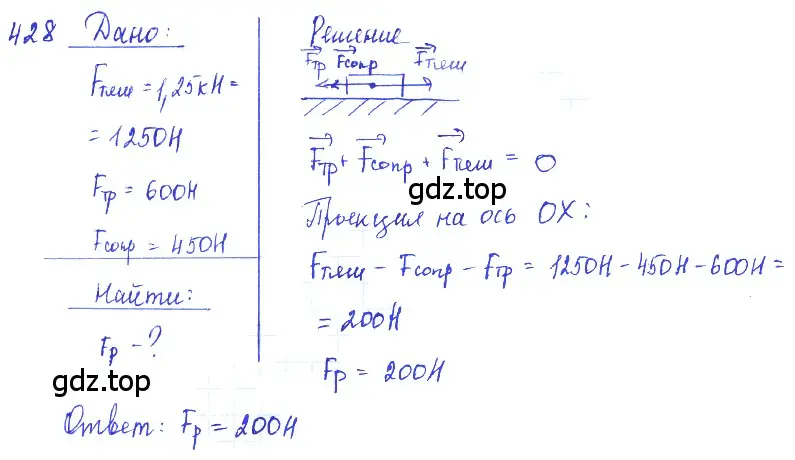 428 Дано:
Fтяги = 1,25кН =
= 1250Н
Fтр = 600Н
Fсопр = 450Н
Найти:
Fр - ?
Решение
Fтр Fсопр Fтяги
Fтр + Fсопр + Fтяги = 0
gdz.top
Проекция на ось OX:
Fтяги - Fсопр - Fтр = 1250Н - 450Н - 600Н =
= 200Н
Fр = 200Н
gdz.top
Ответ: Fр = 200Н